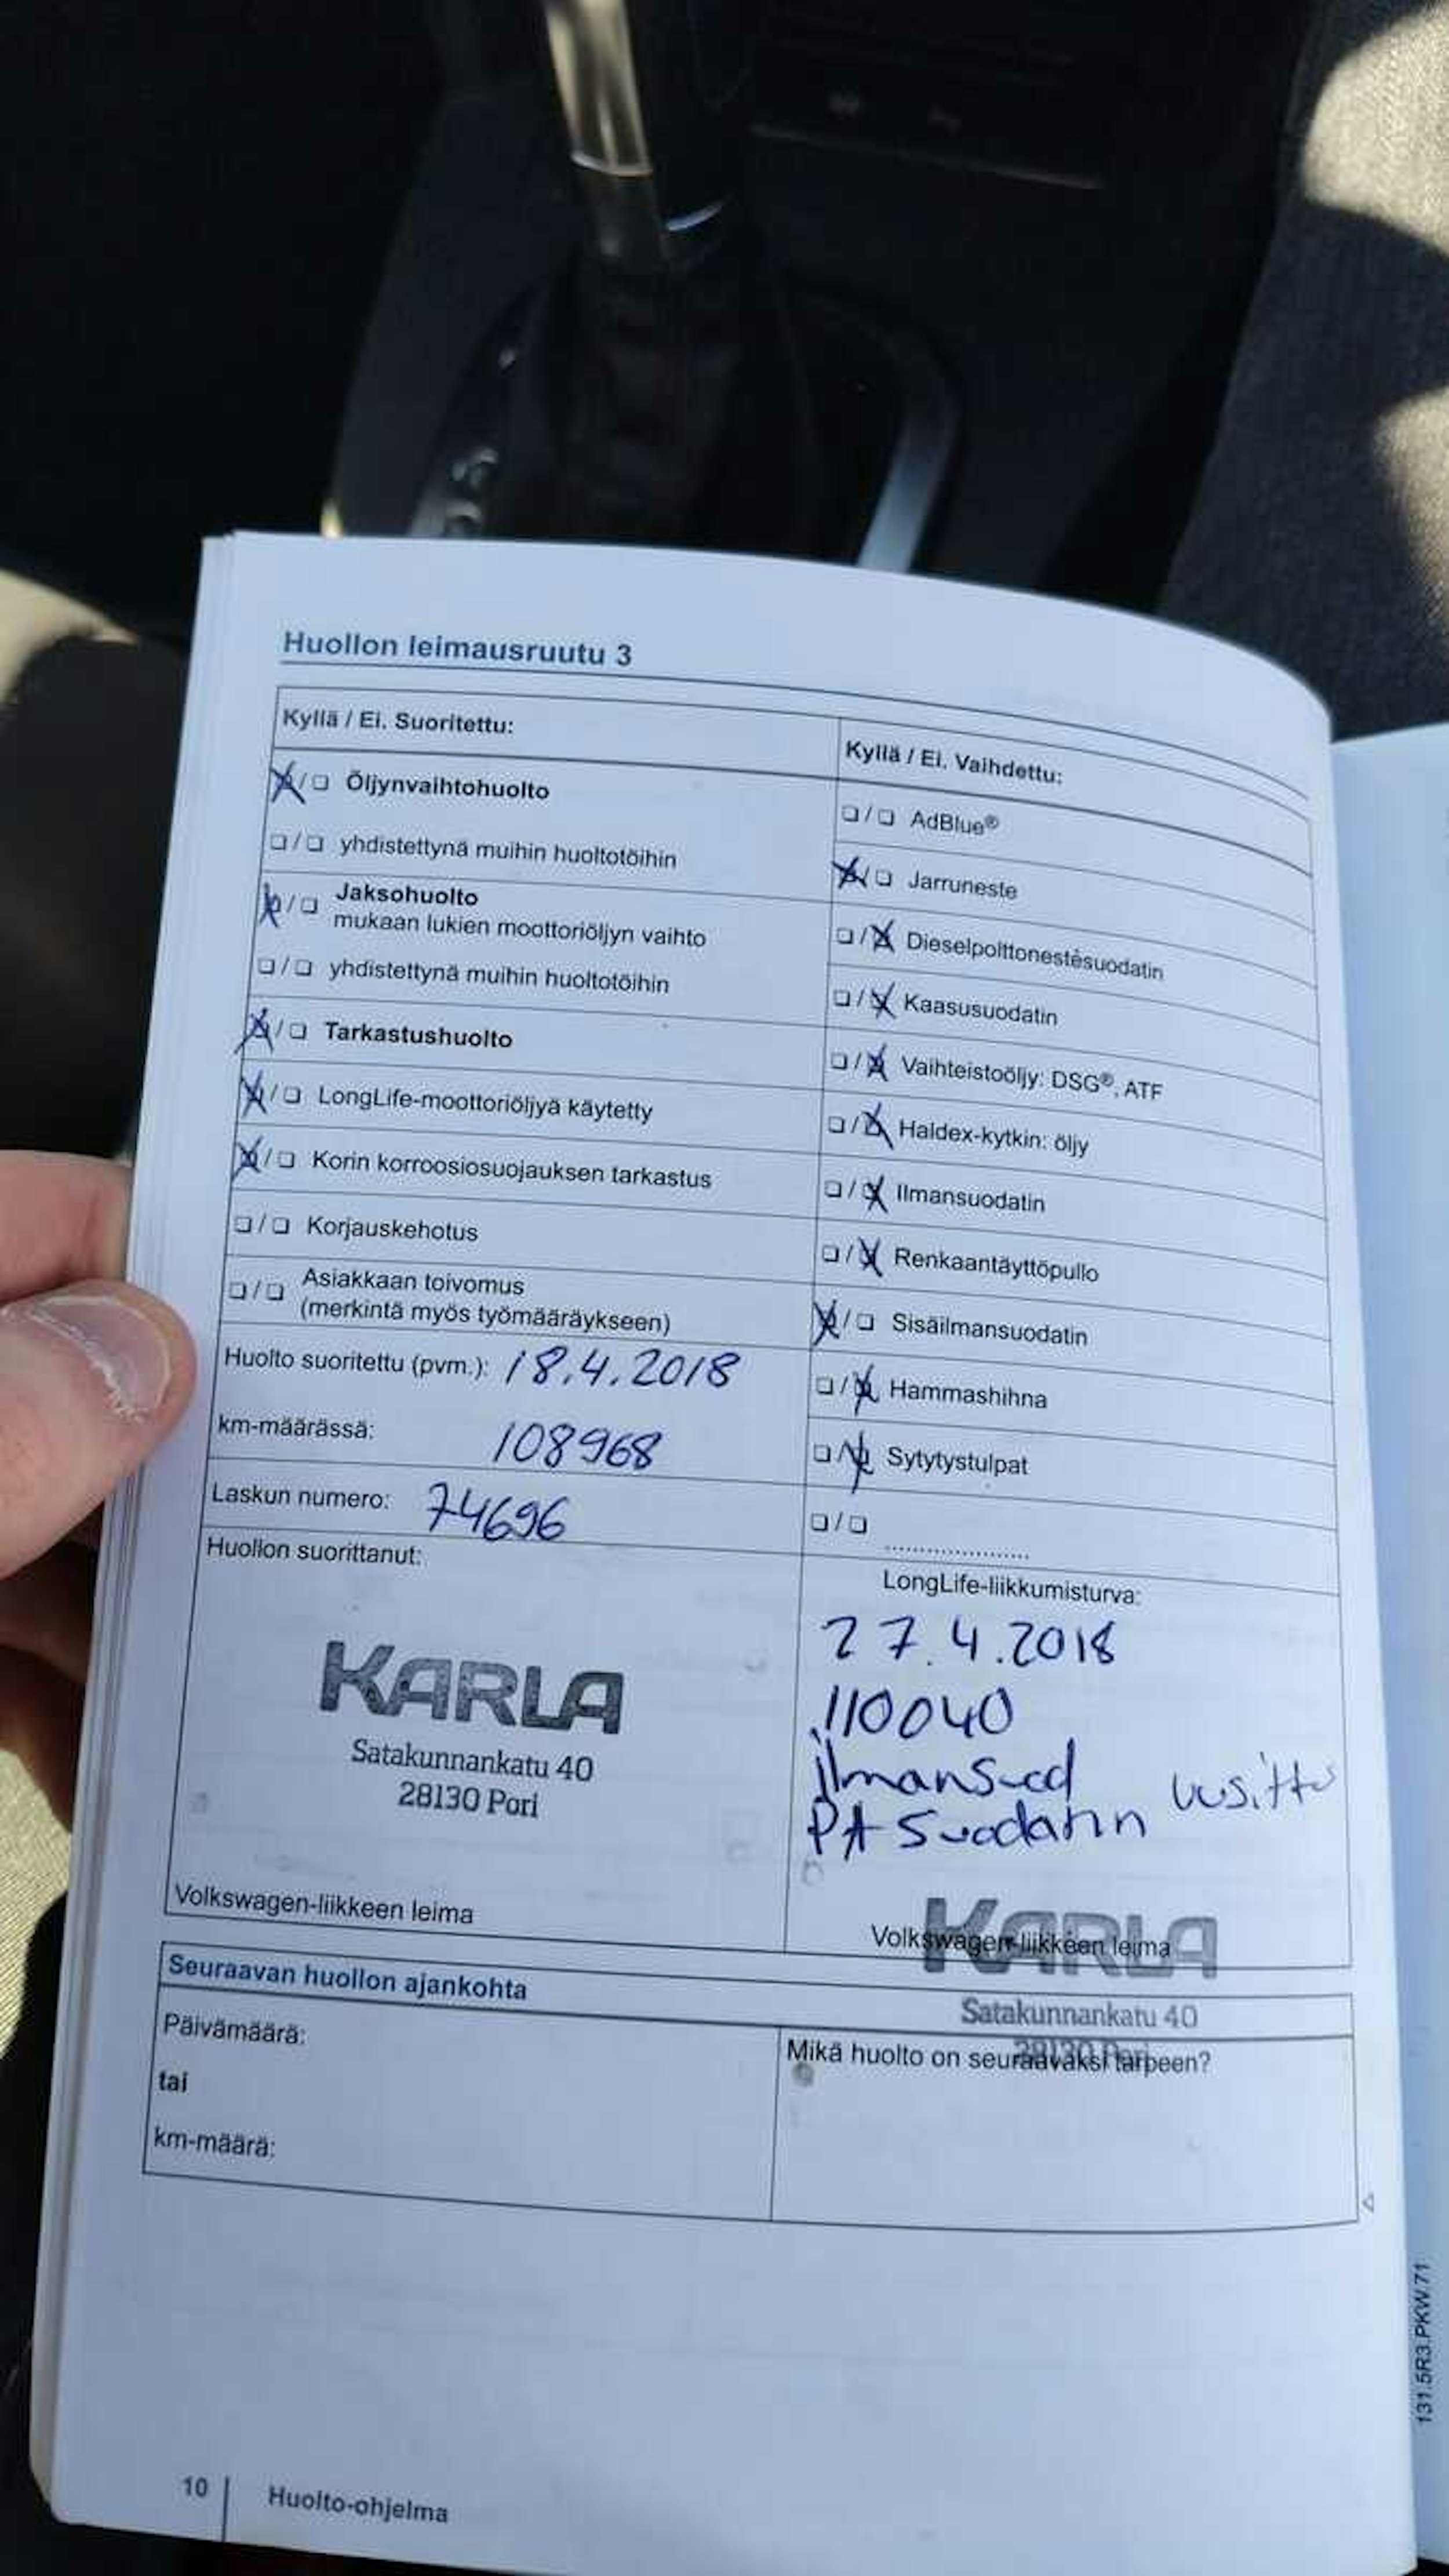 Huollon leimausruutu 3
Kyllä / Ei. Suoritettu:
Öljynvaihtohuolto
yhdistettynä muihin huoltotöihin
Jaksohuolto
mukaan lukien moottoriöljyn vaihto
yhdistettynä muihin huoltotöihin
Tarkastushuolto
LongLife-moottoriöljyä käytetty
Korin korroosiosuojauksen tarkastus
Korjauskehotus
Asiakkaan toivomus
(merkintä myös työmääräykseen)
Huolto suoritettu (pvm.): 18.4.2018
km-määrässä: 108968
Laskun numero: 74696
Huollon suorittanut:
KARLA
Satakunnankatu 40
28130 Pori
Volkswagen-liikkeen leima
Kyllä / Ei. Vaihdettu:
AdBlue®
Jarruneste
Dieselpolttonestesuodatin
Kaasusuodatin
Vaihteistoöljy: DSG®, ATF
Haldex-kytkin: öljy
Ilmansuodatin
Renkaantäyttöpullo
Sisäilmansuodatin
Hammashihna
Sytytystulpat
LongLife-liikkumisturva:
27.4.2018
110040
ilmansuod
PA suodatin uusittu
Volkswagen-liikkeen leima
KARLA
Satakunnankatu 40
28130 Pori
Seuraavan huollon ajankohta
Päivämäärä:
tai
km-määrä:
Mikä huolto on seuraavaksi tarpeen?
131.5R3.PKW.71
10 Huolto-ohjelma